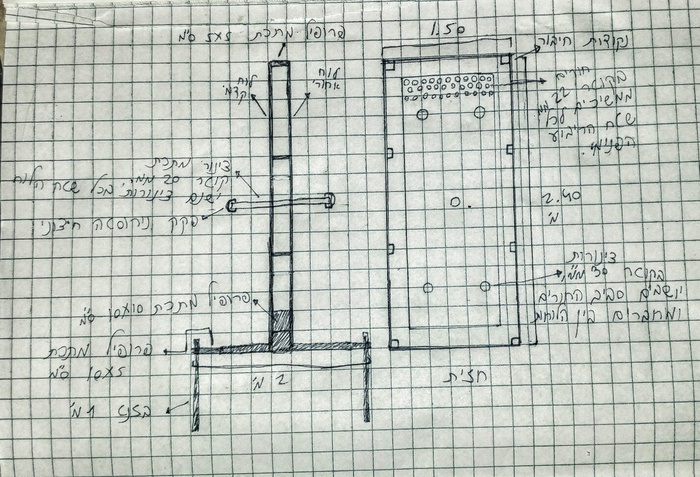 פרופיל מתכת 5x5 ס"מ
לוח
קדמי
לוח
אחורי
צינור מתכת
קוטר 20 ממ'
ישנם צינורות בכל שטח הלוח
פקק נירוסטה חיצוני
פרופיל מתכת 10x10 ס"מ
פרופיל מתכת
10x5 ס"מ
2 מ'
בזנט 1 מ'
1.50
נקודות חיבור
חורים
בקוטר 22 ממ
ממשיכים לכל
שטח הריבוע
הפנימי.
2.40
מ'
צינורות
בקוטר 30 ממ'
יושבים סביב החורים
ומחברים בין הלוחות
חזית